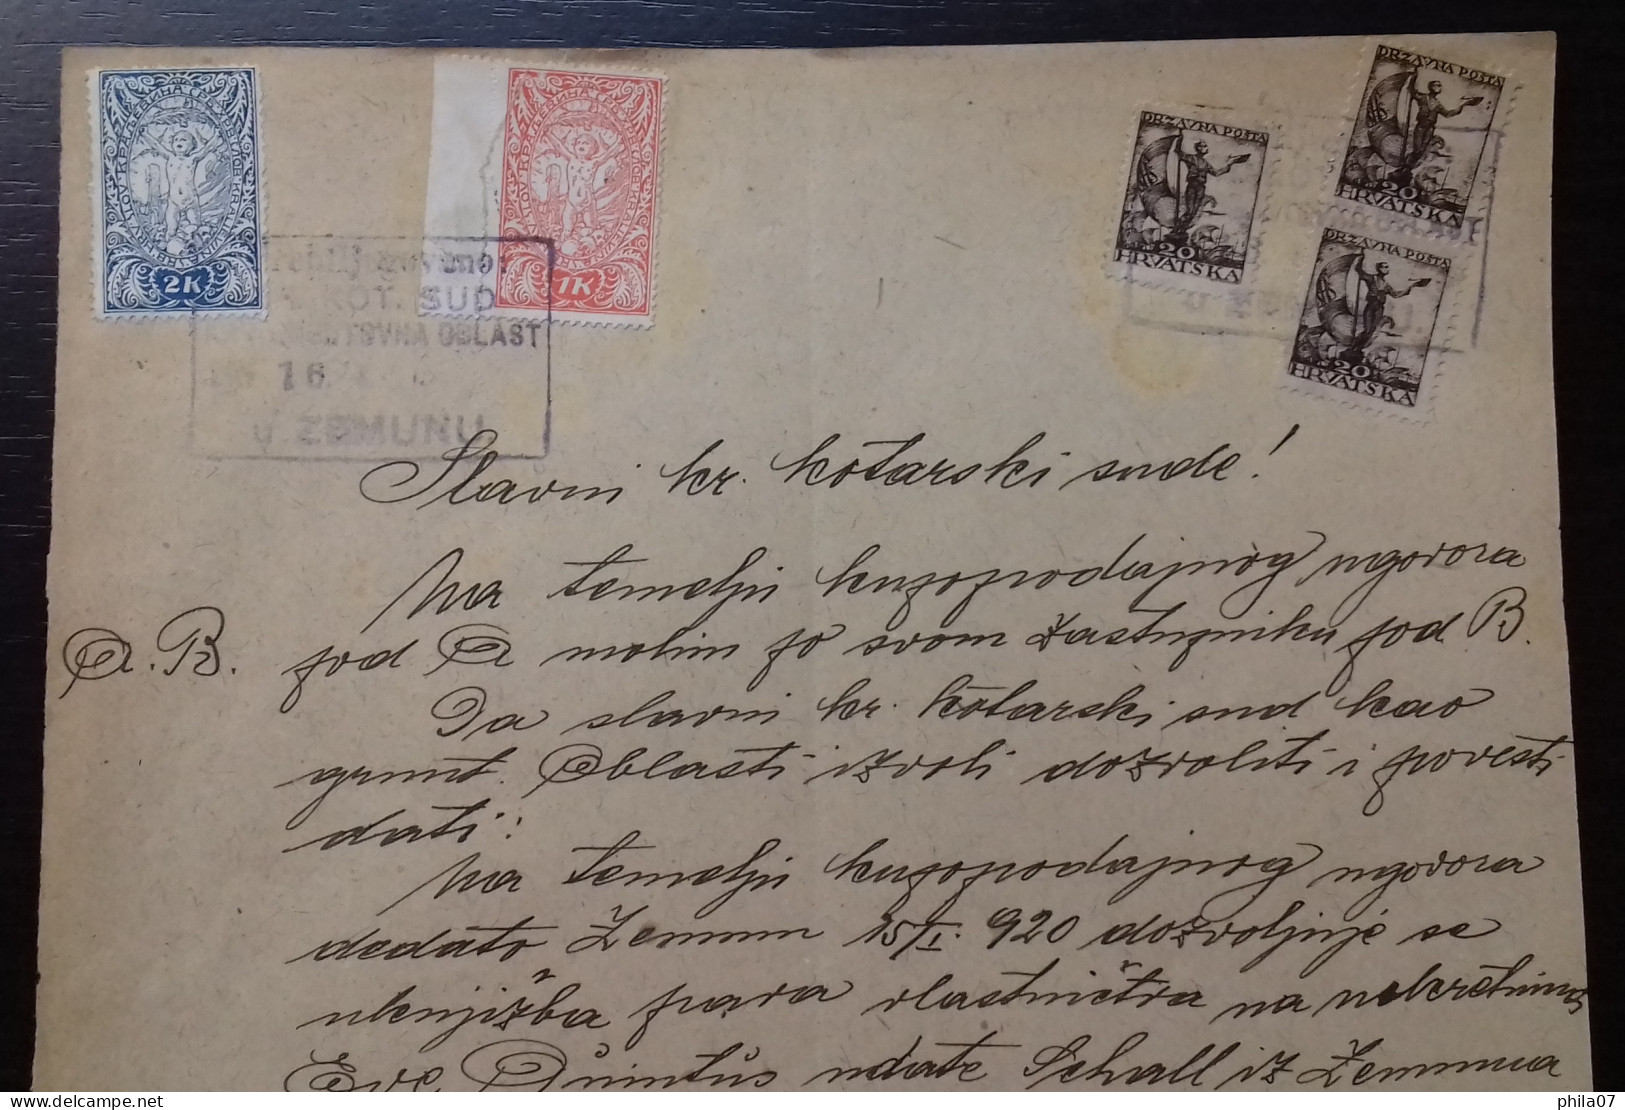 КРАЉЕВИНА СРБА
2К
КРАЉЕВИНА СРБА
1К
DRŽAVNA POŠTA
20
HRVATSKA
DRŽAVNA POŠTA
20
HRVATSKA
DRŽAVNA POŠTA
20
HRVATSKA
KOT. SUD
OBLAST
16.
U ZEMUNU
Slavni kr. kotarski sude!
Na temelju kupoprodajnog ugovora
A. B. pod A molim po svom zastupniku pod B.
Da slavni kr. kotarski sud kao
grunt. Oblasti izvoli dozvoliti i povesti
dati:
Na temelju kupoprodajnog ugovora
dedato Zemun 15/I. 920 dozvoljuje se
uknjižba prava vlastničtva na nekretninas
Eve Quintus udate Schall iz Zemuna
phila07